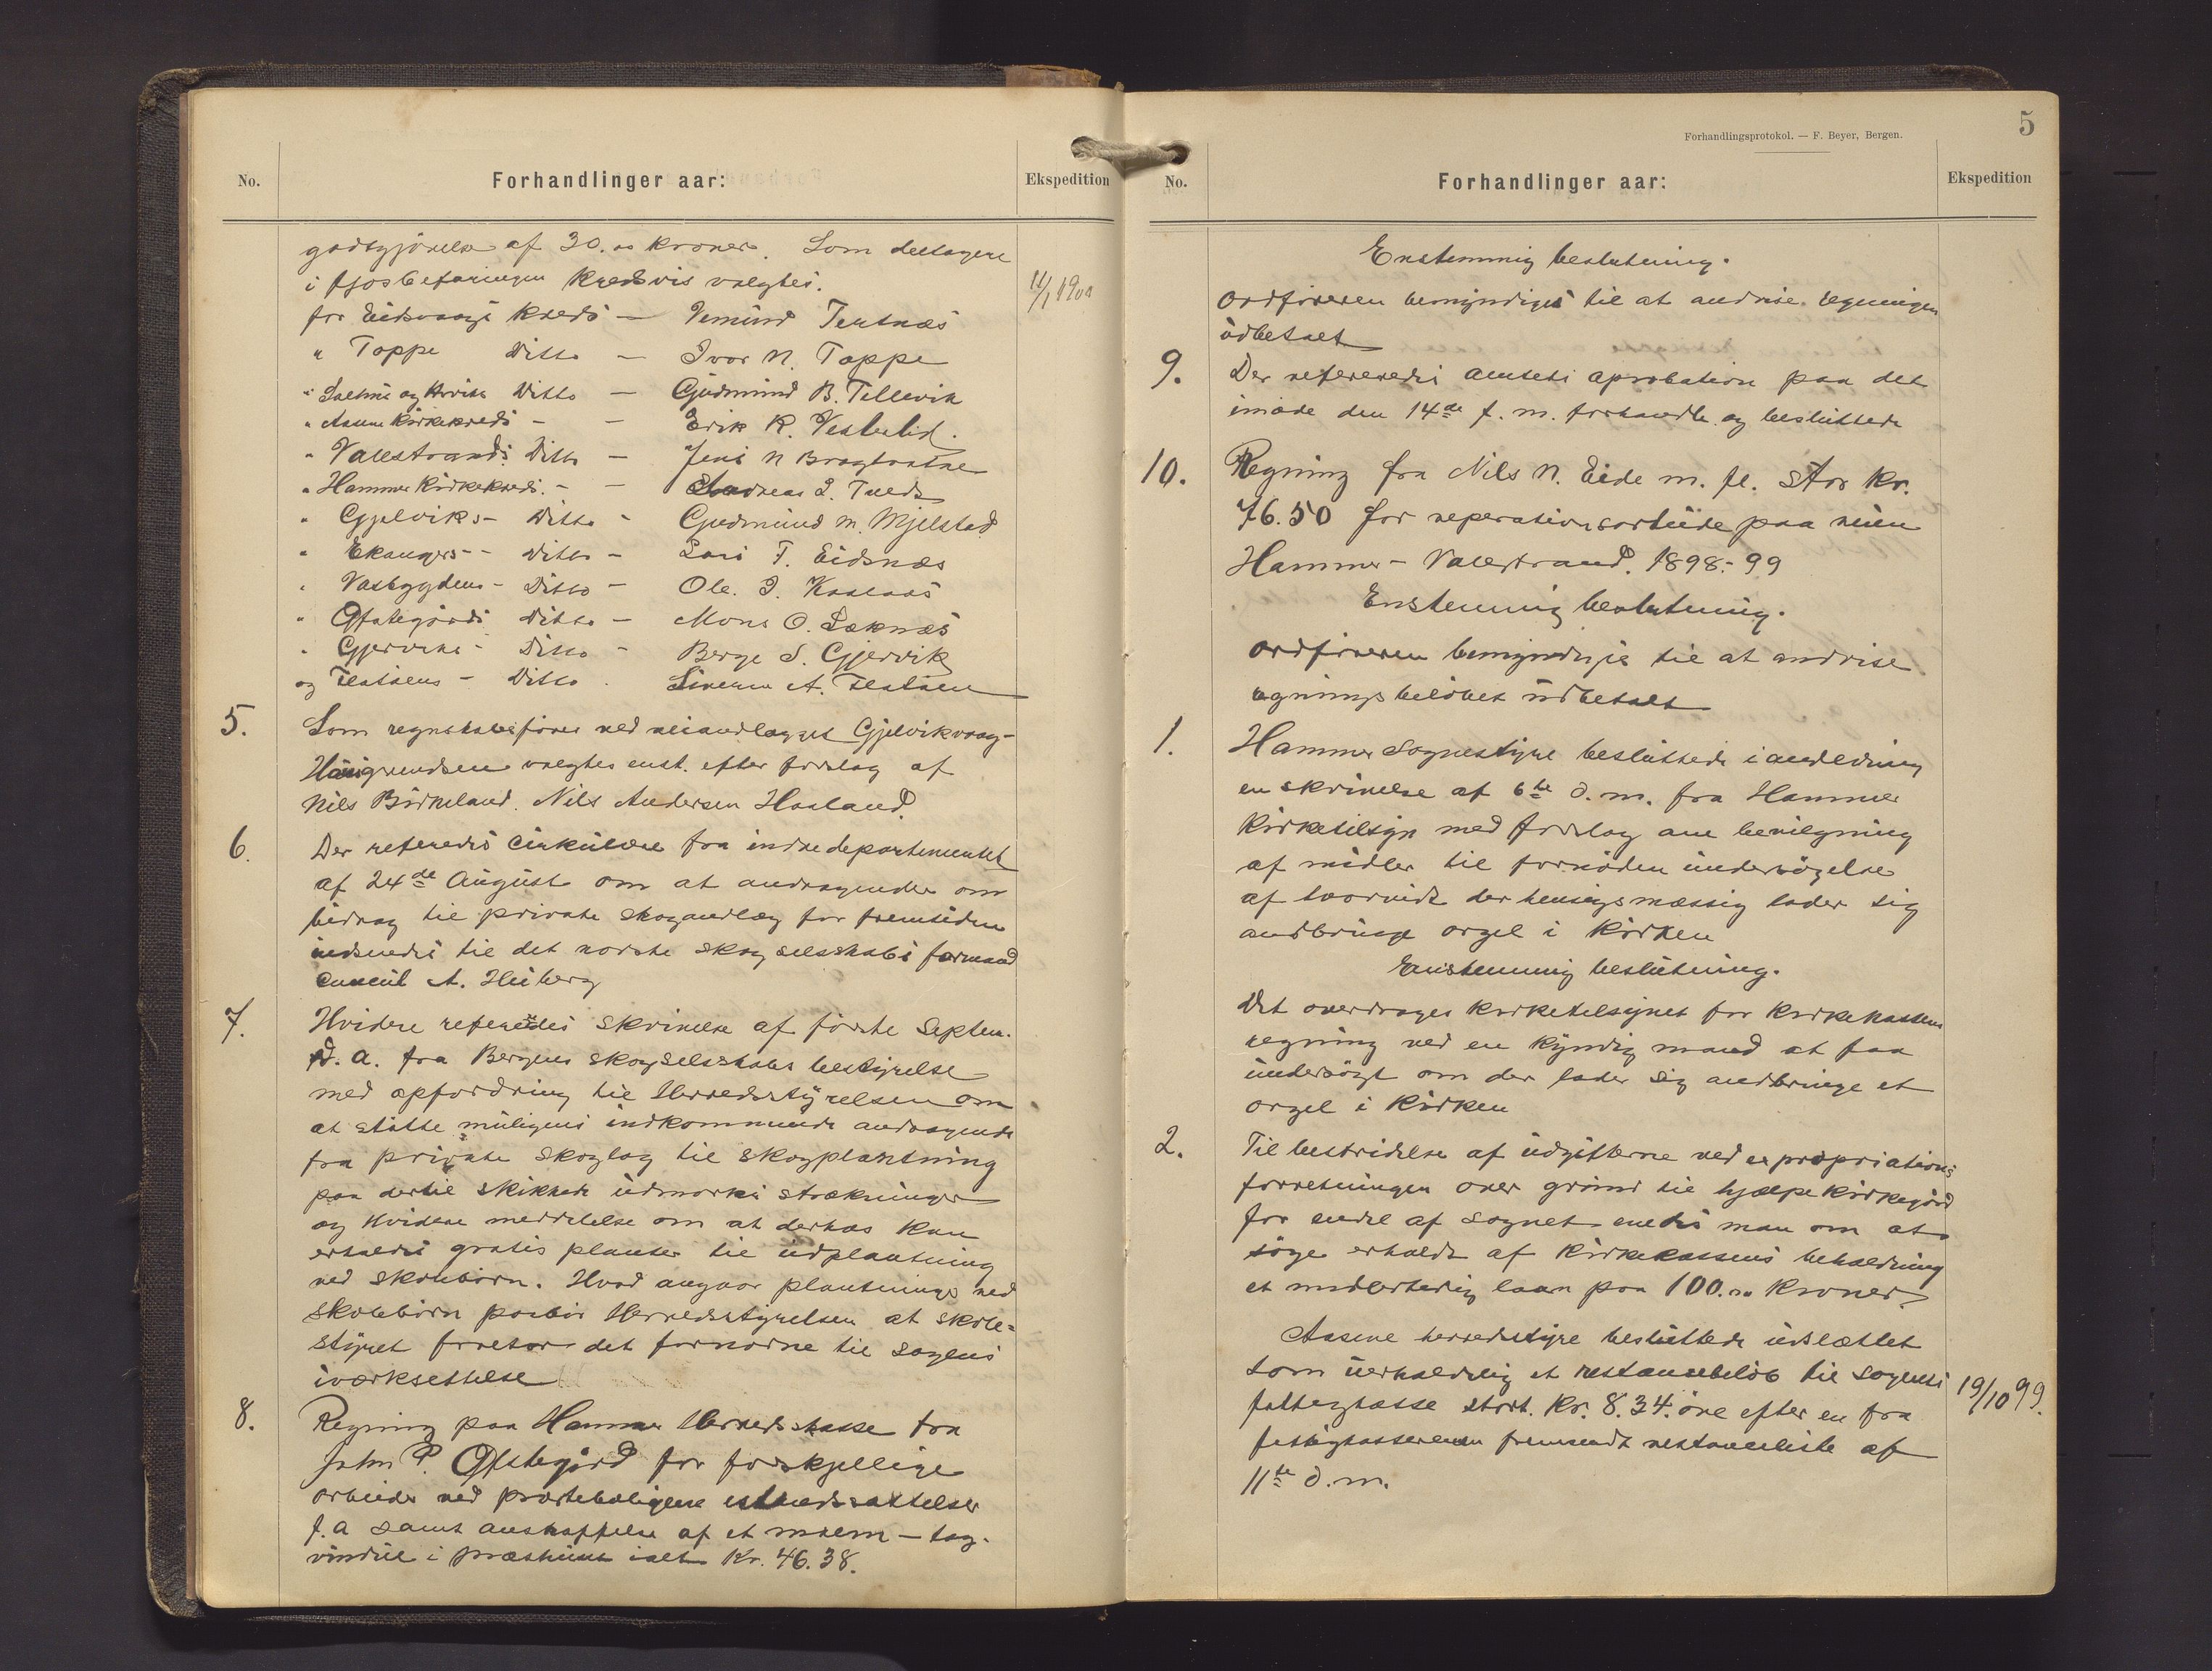 No.
Forhandlinger aar:
Ekspedition
godtgjörelse af 30.00 kroner. Som deltagere
i fjösbefaringen kredsvis valgtes.
11/1 1900
for Eidsvaags kreds — Vemund Tertnæs
" Toppe Ditto — Ivar N. Toppe
" Salhus og Ditto — Gudmund B. Tellevik
" Aasene Kirkekreds — — Erik R. Vesterlid.
" Valestrands Ditto — Jens N
" Hammer Kirkekreds. — — Andreas I. Tveds
" Gjelviks — Ditto — Gudmund M. Mjelstad
" Ekangers — Ditto — Lars T. Eidsnæs
" Vasbygdens — Ditto — Ole. I.
" Ofstegårds Ditto — Mons O. Loknæs
" Gjerviks — Ditto — Berge S. Gjervik
og Flatöens — Ditto. A. Flatöen
5. Som regnskabsförer ved veianlægget Gjelvikvaag-
valgtes enst. efter forslag af
Nils Birkeland. Nils Andersen Hosland.
6. Der refereredes cirkulære fra indredepartementet
af 24de August om at andragender om
bidrag til private skoganlæg for fremtiden
indsendes til det norske skogselskabs formand
Consul A. Heiberg
7. Hvidere refereredes skrivelse af förste Septem.
d. A. fra Bergens skogselskabs bestyrelse
med opfordring til Herredsstyrelsen om
at stötte muligens indkommende andragende
fra private skoglag til skogplantning
paa dertil skikkede udmarks strækninger
og hvidere meddelelse om at derhos kan
erholdes gratis planter til udplantning
ved skolebörn. Hvad angaar plantninger ved
skolebörn paabör Herredsstyrelsen at skole-
styret foretar det fornödne til sagens
iværksettelse
8. Regning paa Hammer Herredskasse fra
John P. Ofstegård for forskjellige
arbeider ved præsteboligens istandsættelse
f. A samt anskaffelse af et — tag-
vindue i ialt Kr. 46.38.
Forhandlingsprotokol. — F. Beyer, Bergen.
5
No.
Forhandlinger aar:
Ekspedition
Enstemmig beslutning.
Ordföreren bemyndiges til at andvise regningen
udbetalt
9. Der refereredes amtets aprobation paa det
imöde den 14de f. m. forhandle og besluttede
10. Regning fra Nils N. Eide m. fl. stor Kr.
76.50 for reperationsarbeide paa veien
Hammer — Valestrand. 1898-99
Enstemmig beslutning.
Ordföreren bemyndiges til at andvise
regningsbelöbet udbetalt
1. Hammer Sognestyre besluttede i andledning
en skrivelse af 6te d. m. fra Hammer
Kirketilsyn med forslag om bevilgning
af midler til fornöden undersögelse
af hvorvidt der hensigsmæssig lader sig
andbringe orgel i Kirken
Enstemmig beslutning.
Det overdrages kirketilsynet for kirkekassens
regning ved en kyndig mand at faa
undersögt om der lader sig andbringe et
orgel i Kirken
2. Til bestridelse af udgifterne ved expropriations
forretningen over grund til hjælpekirkegård
for endel af sognet enedes man om at
söge erholdt af Kirkekassens beholdning
et midlertidig laan paa 100.00 Kroner
Aasene herredstyre besluttede udslættet
som uerholdelig et restancebelöb til sognets
fattigkasse stort. Kr. 8.34. öre efter en fra
19/10 99.
fattigkassereren fremsendt restanceliste af
11te d. m.